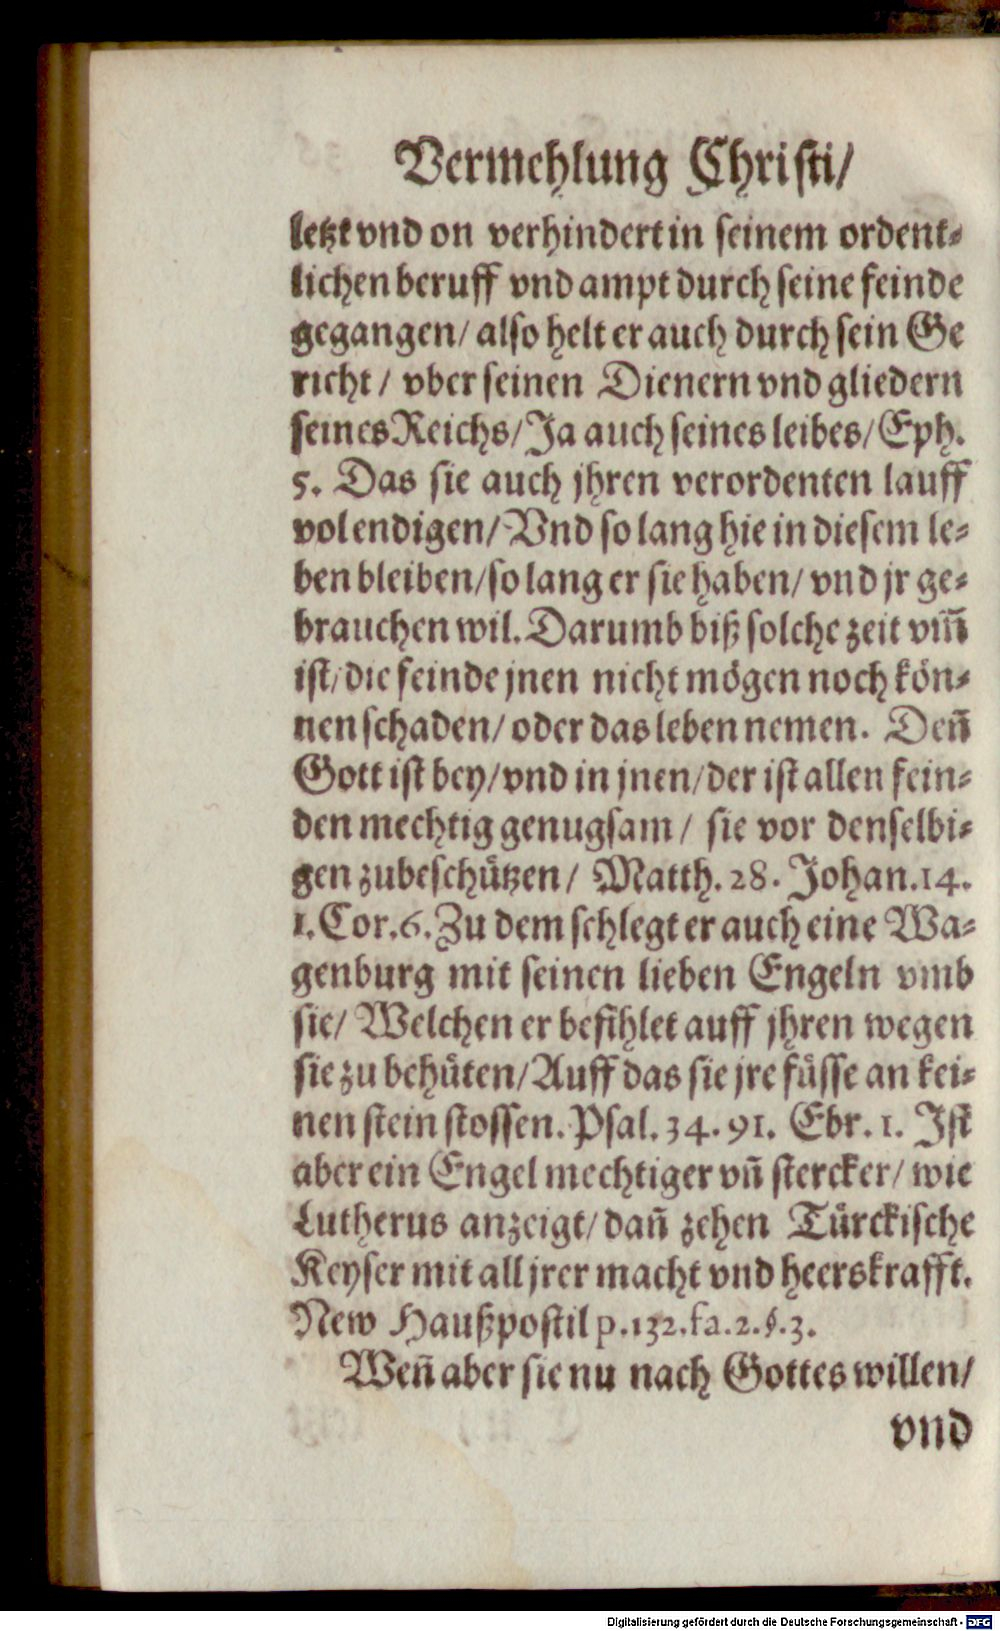 Vermehlung Christi/
letzt vnd on verhindert in seinem ordent-
lichen beruff vnd ampt durch seine feinde
gegangen/ also helt er auch durch sein Ge
richt/ vber seinen Dienern vnd gliedern
seines Reichs/ Ja auch seines leibes/ Eph.
5. Das sie auch jhren verordenten lauff
volendigen/ Vnd so lang hie in diesem le-
ben bleiben/ so lang er sie haben/ vnd jr ge-
brauchen wil. Darumb biß solche zeit vm̃
ist/ die feinde jnen nicht mögen noch kön-
nen schaden/ oder das leben nemen. Deñ
Gott ist bey/ vnd in jnen/ der ist allen fein-
den mechtig genugsam/ sie vor denselbi-
gen zubeschützen/ Matth. 28. Johan. 14.
1. Cor. 6. Zu dem schlegt er auch eine Wa-
genburg mit seinen lieben Engeln vmb
sie/ Welchen er befihlet auff jhren wegen
sie zu behüten/ Auff das sie jre füsse an kei-
nen stein stossen. Psal. 34. 91. Ebr. 1. Ist
aber ein Engel mechtiger vñ stercker/ wie
Lutherus anzeigt/ dañ zehen Türckische
Keyser mit all jrer macht vnd heerskrafft.
New Haußpostil p. 132. fa. 2. §. 3.
Weñ aber sie nu nach Gottes willen/
vnd
Digitalisierung gefördert durch die Deutsche Forschungsgemeinschaft - DFG